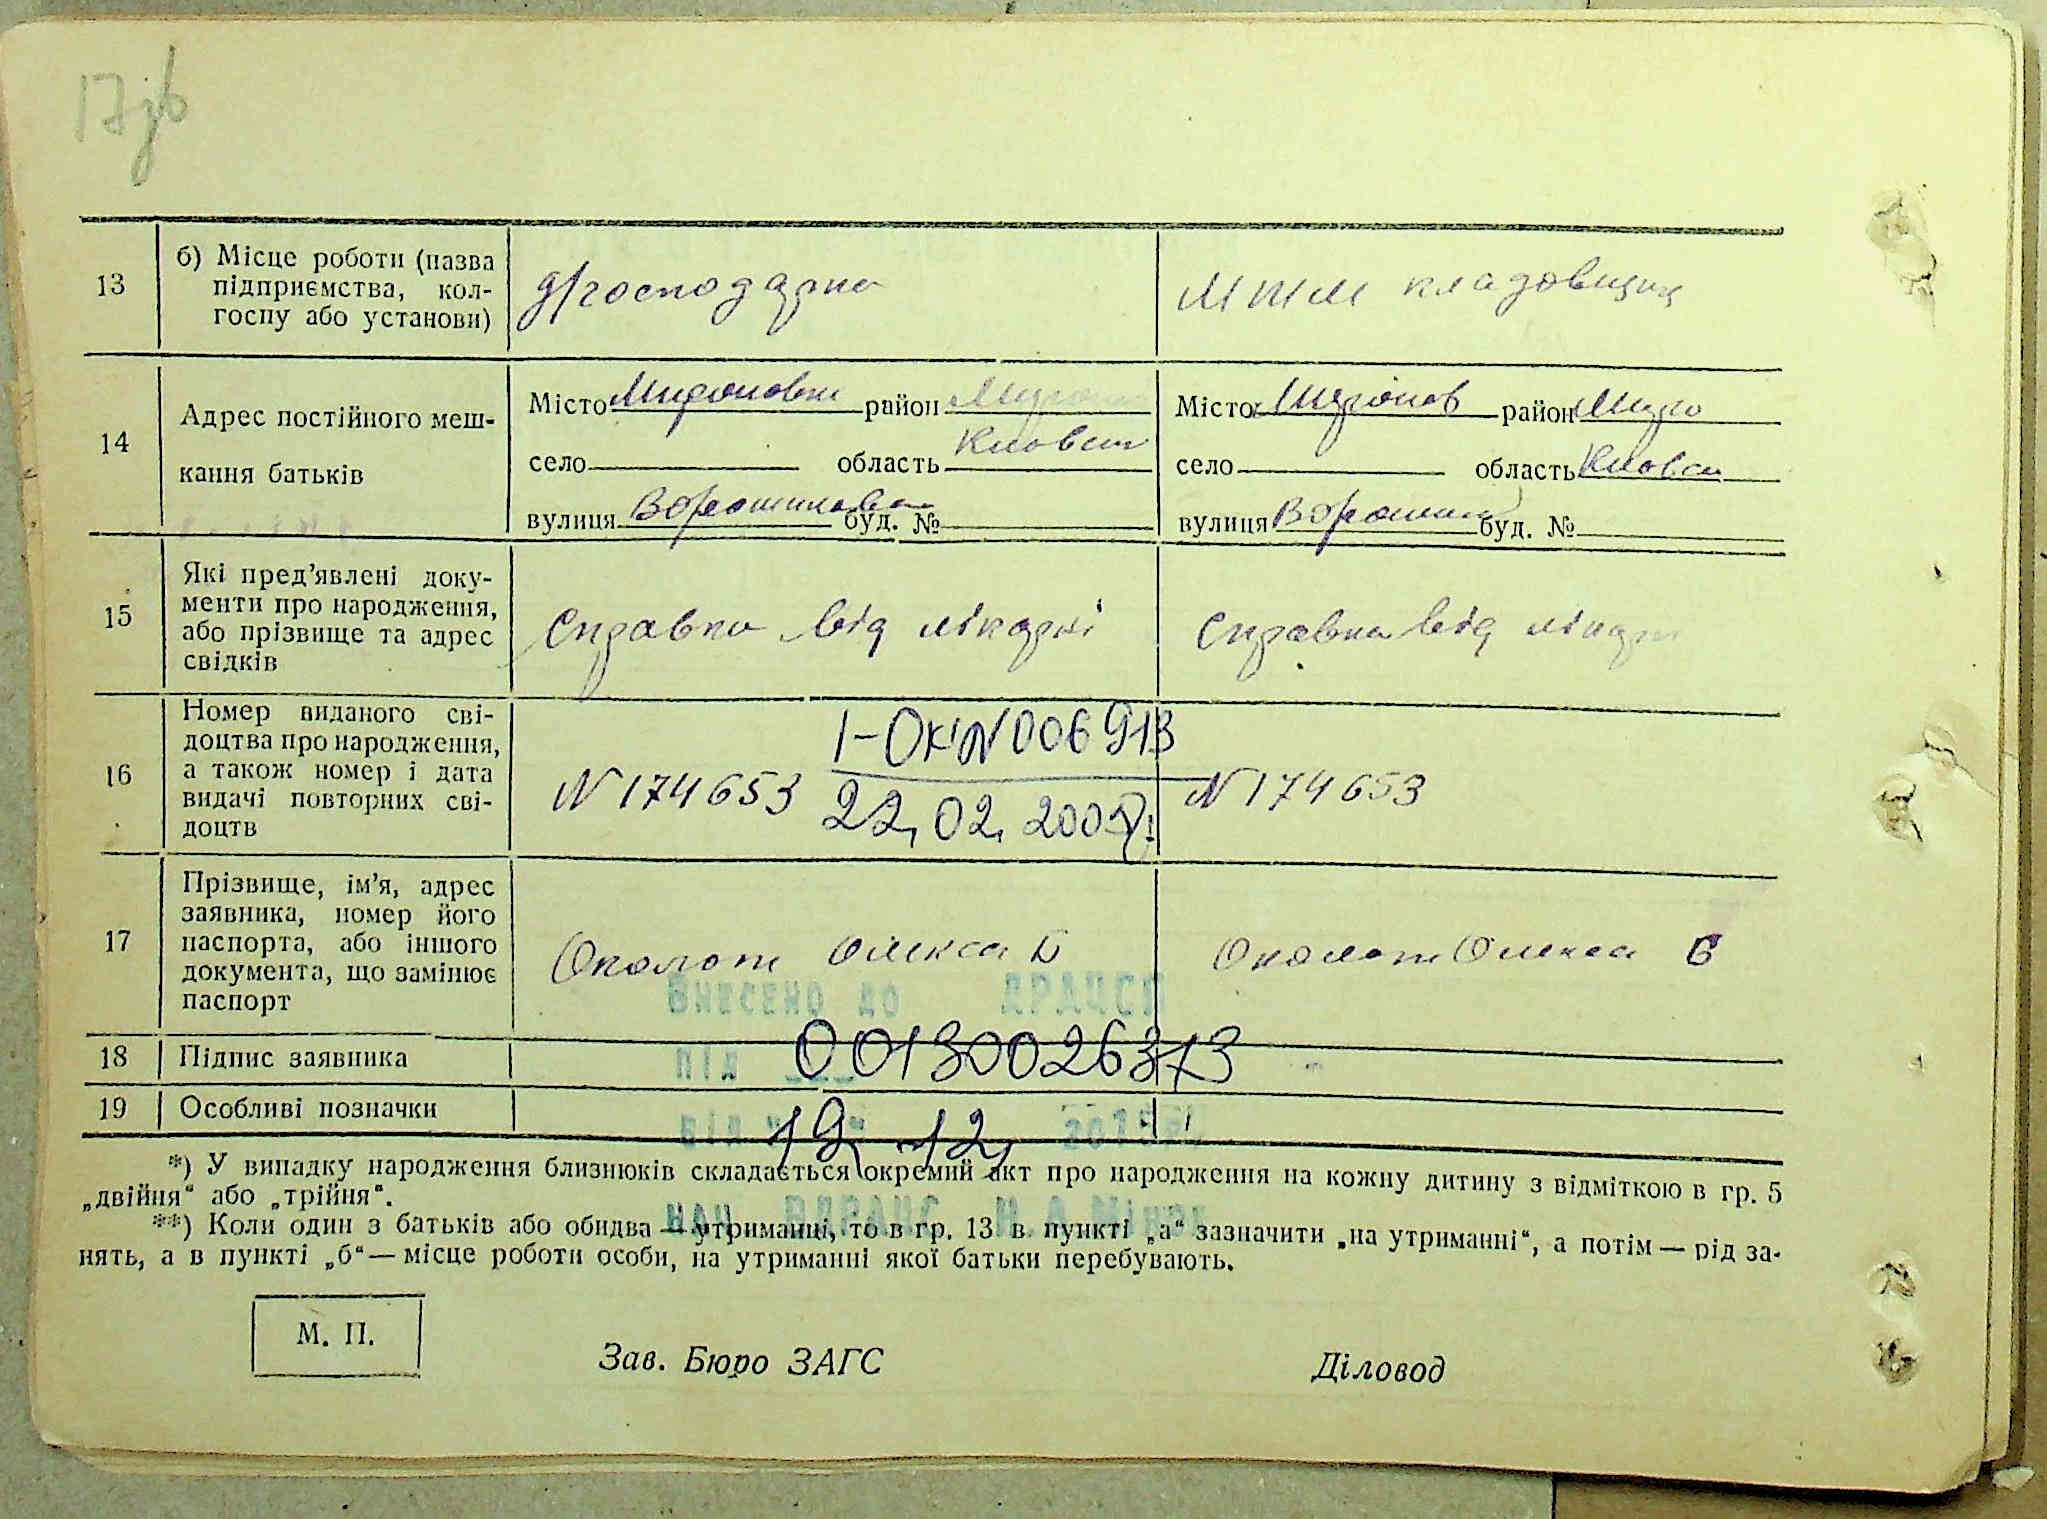 17зв
13
б) Місце роботи (назва
підприємства, кол-
госпу або установи)
д/господарка
МТМ кладовщик
14
Адрес постійного меш-
кання батьків
Місто Мироновка район Мирон
село область Києвськ
вулиця Ворошилова буд. №
Місто Миронов район Миро
село область Києвськ
вулиця Ворошил буд. №
15
Які пред’явлені доку-
менти про народження,
або прізвище та адрес
свідків
Справка від лікарні
Справка від лікарні
16
Номер виданого сві-
доцтва про народження,
а також номер і дата
видачі повторних сві-
доцтв
N 174653
I-ОК N 006913
22.02.200
N 174653
17
Прізвище, ім’я, адрес
заявника, номер його
паспорта, або іншого
документа, що замінює
паспорт
Околот Олекса Б
Околот Олекса Б
Внесено до ДРАЦСП
18
Підпис заявника
під 00130026373
19
Особливі позначки
від 19 12 201
*) У випадку народження близнюків складається окремий акт про народження на кожну дитину з відміткою в гр. 5
„двійня“ або „трійня“.
**) Коли один з батьків або обидва — утриманці, то в гр. 13 в пункті „а“ зазначити „на утриманні“, а потім — рід за-
нять, а в пункті „б“ — місце роботи особи, на утриманні якої батьки перебувають.
М. П.
Зав. Бюро ЗАГС
Діловод